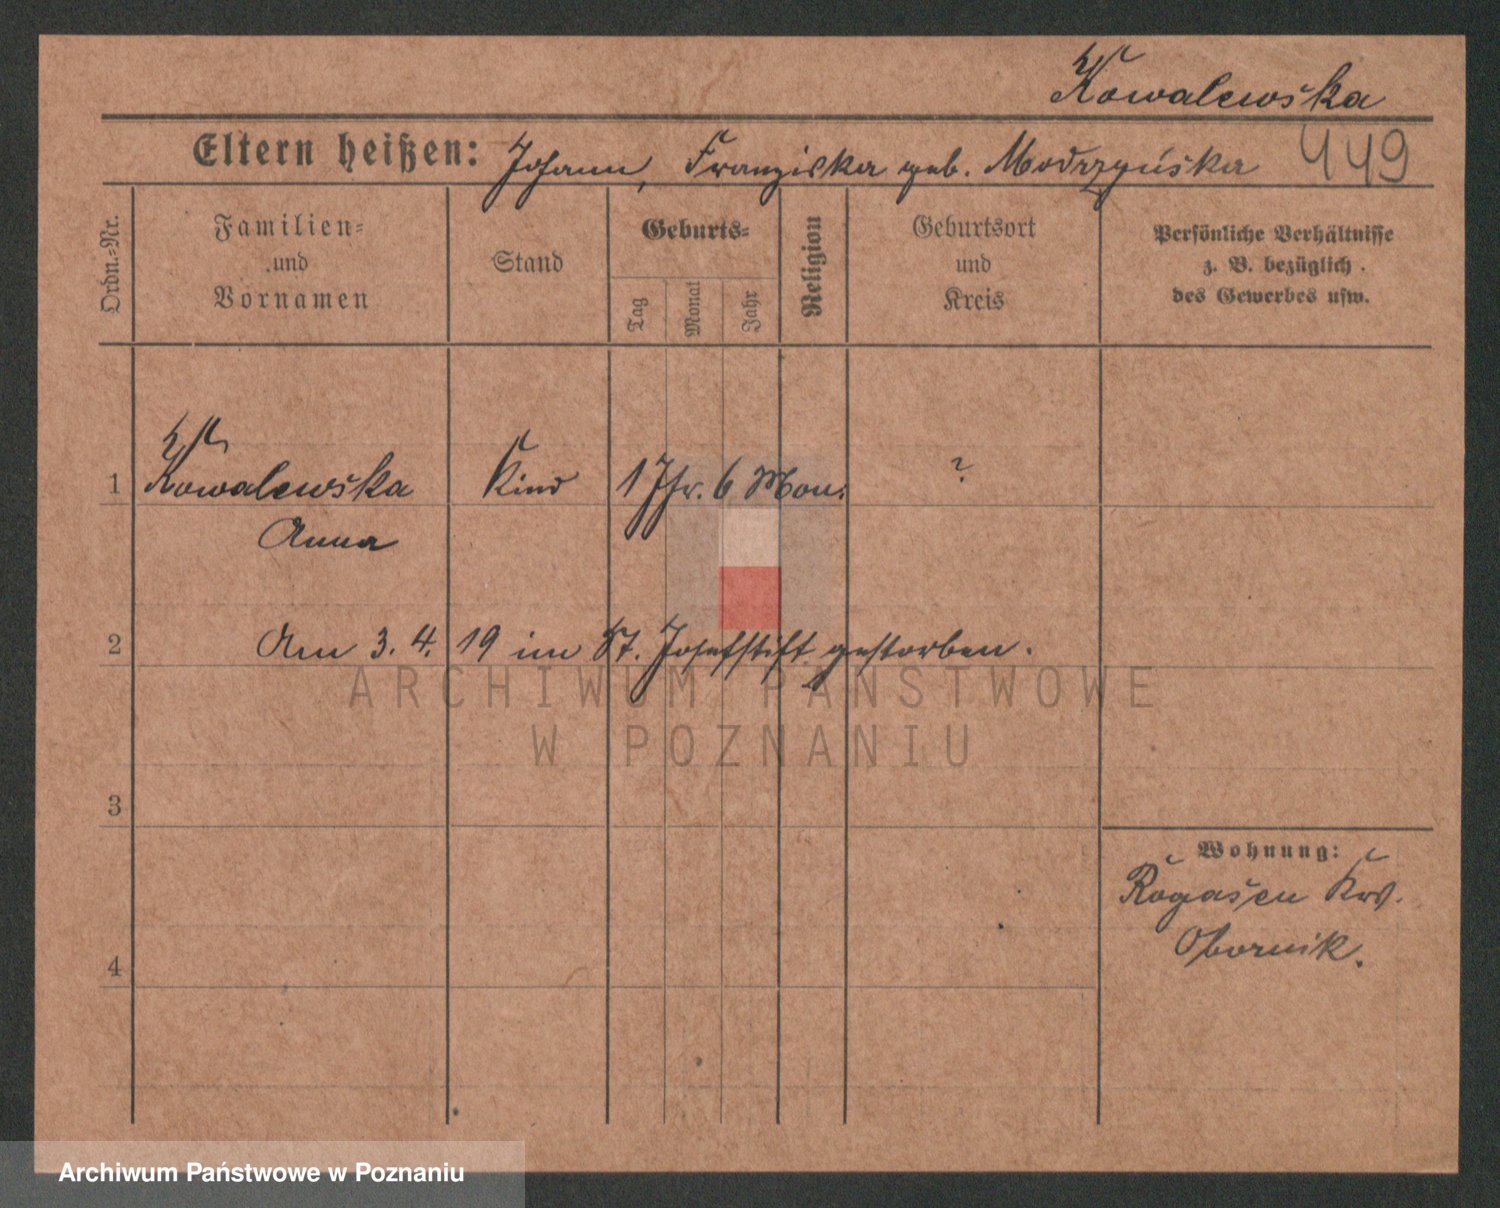 Kowalewska
Eltern heißen: Johann, Franziska geb. Modrzyńska 449
Ordn.-Nr.
Familien- und Vornamen
Stand
Geburts-
Tag
Monat
Jahr
Religion
Geburtsort und Kreis
Persönliche Verhältnisse z. B. bezüglich des Gewerbes usw.
1 Kowalewska Kind 1 Jhr. 6 Mon. ?
Anna
2 Am 3. 4. 19 im St. Josefstift gestorben.
ARCHIWUM PAŃSTWOWE
W POZNANIU
3
Wohnung:
Rogasen Krs.
Obornik.
4
Archiwum Państwowe w Poznaniu